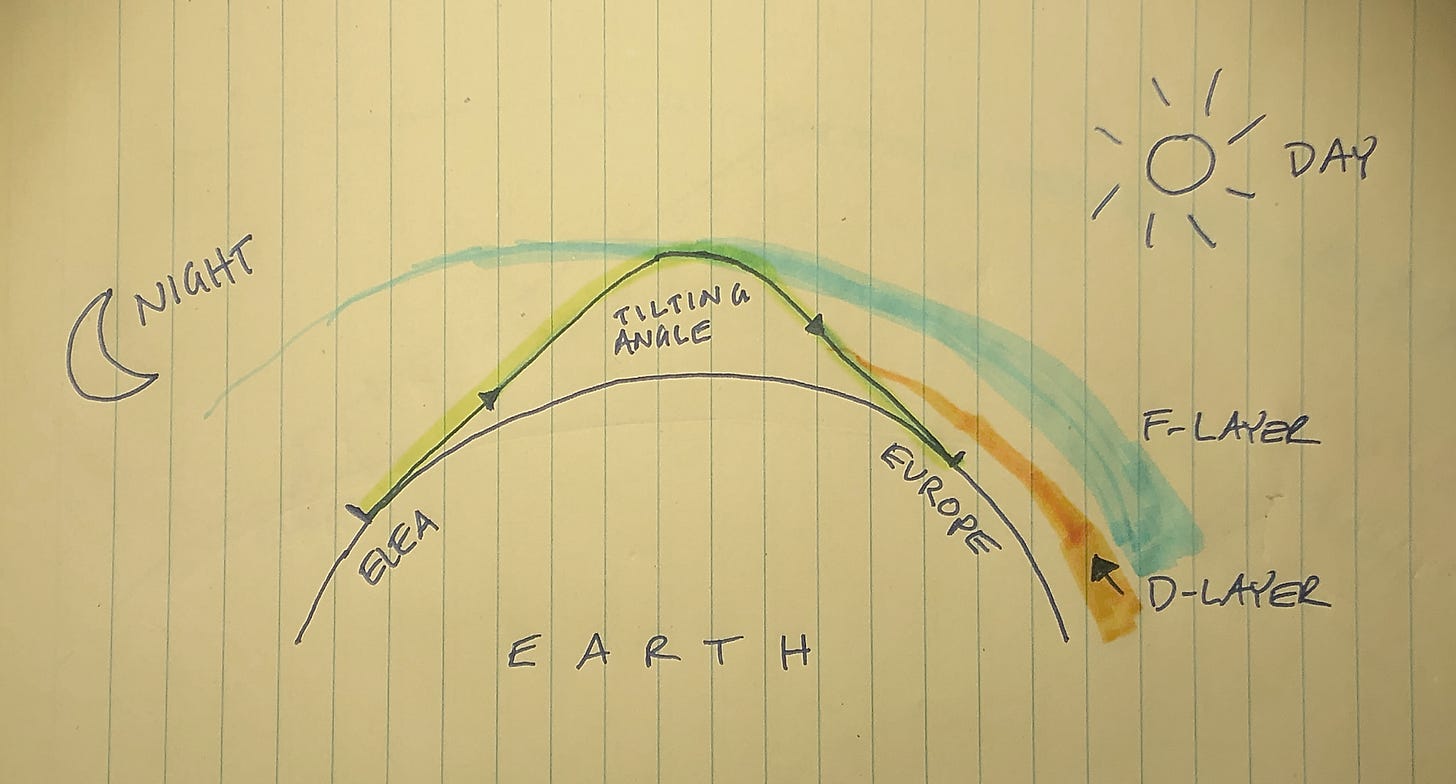 DAY
NIGHT
TILTING
ANGLE
F-LAYER
EUROPE
ELEA
D-LAYER
EARTH